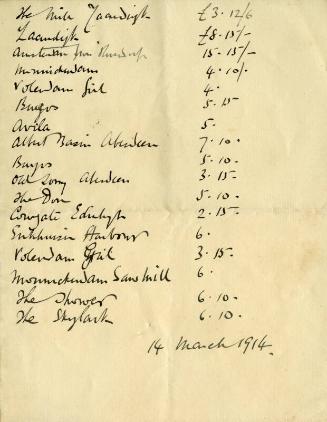 The Mill Zaandijk £3.12/6
Zaandijk £8.15/-
Amsterdam from 15.15/-
Monnickendam 4.10/-
Volendam Girl 4.
Burgos 5.15
Avila 5.
Albert Basin Aberdeen 7.10.
Burgos 5.10.
Aberdeen 3.15
The Don 5.10.
Cowgate Edinburgh 2.15.
Enkhuizen Harbour 6.
Volendam Girl 3.15-
Monnickendam Sawmill 6.
The Shower 6.10.
The Skylark 6.10.
14 March 1914.